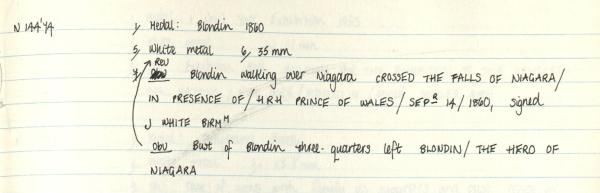 N 144'74 1/ Medal: Blondin 1860
5/ White metal 6/ 35mm
rev
7/ Obv Blondin walking over Niagara CROSSED THE FALLS OF NIAGARA/
IN PRESENCE OF/ HRH PRINCE OF WALES/ SEPR 14/1860, signed
J WHITE BIRMM
Obv Bust of Blondin three-quarters left BLONDIN/ THE HERO OF
NIAGARA